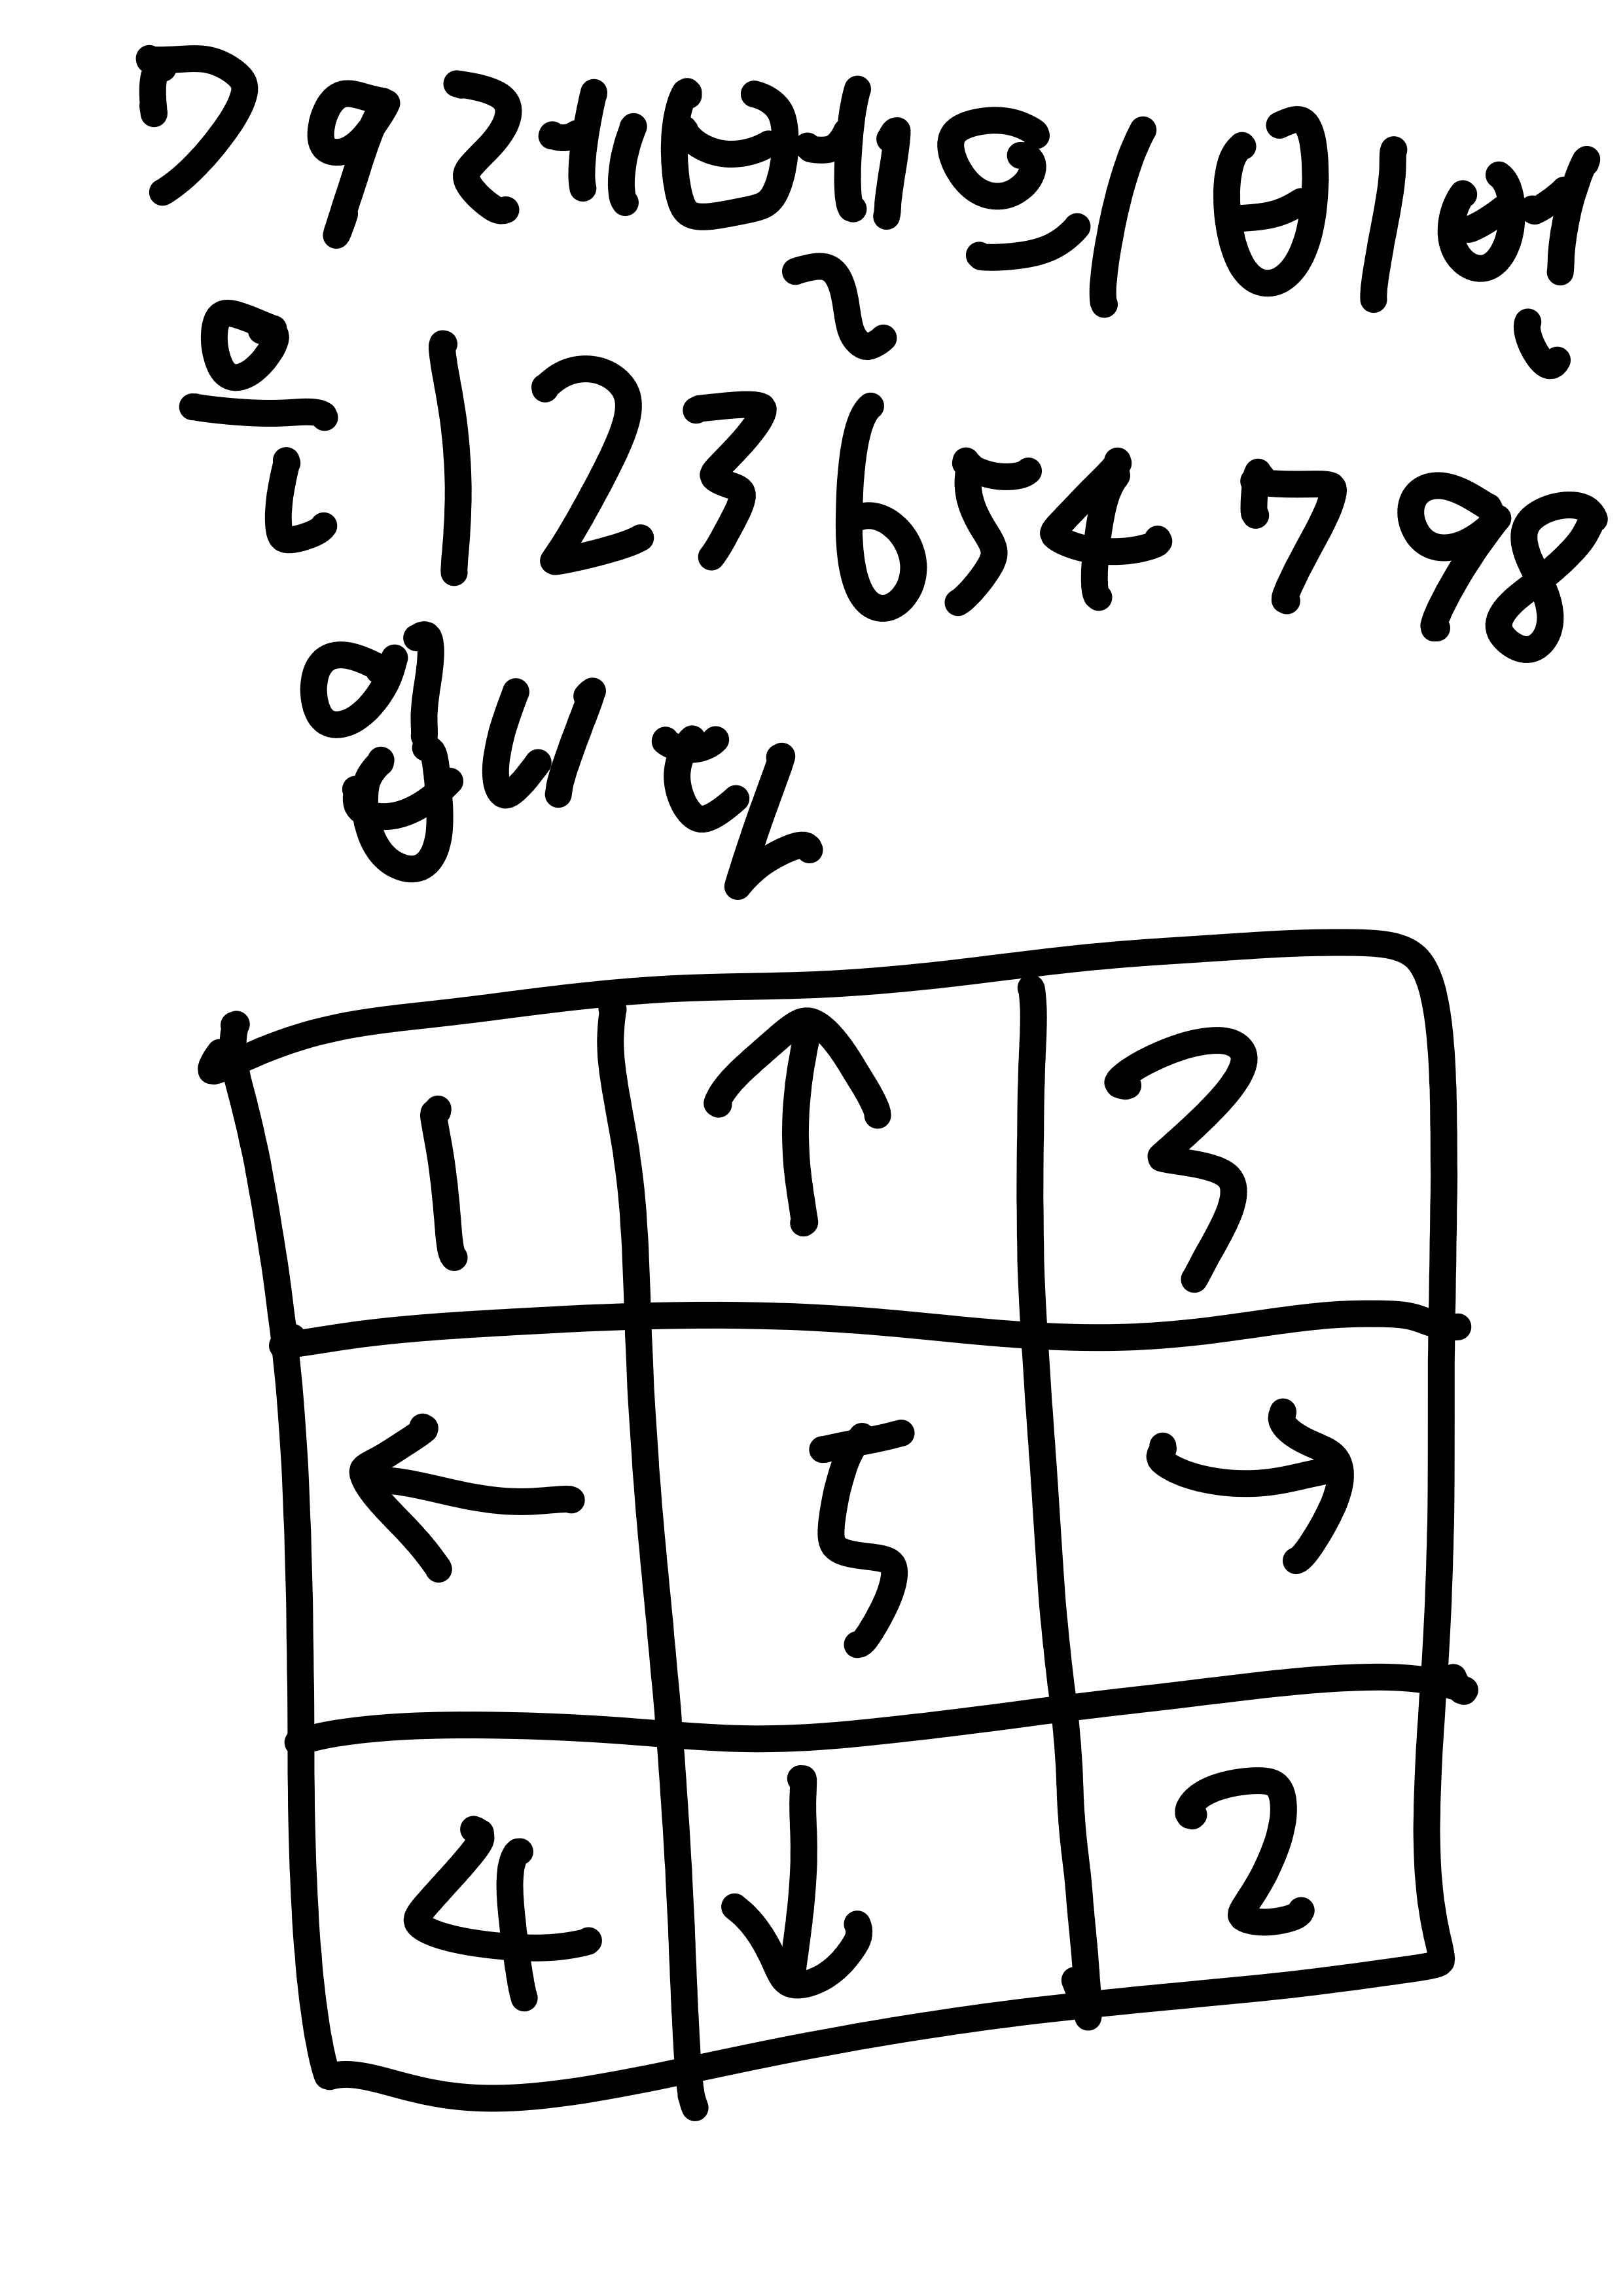 79레벨의 비번
은 123654798
입니다
1 ↑ 3
← 5 →
4 ↓ 2